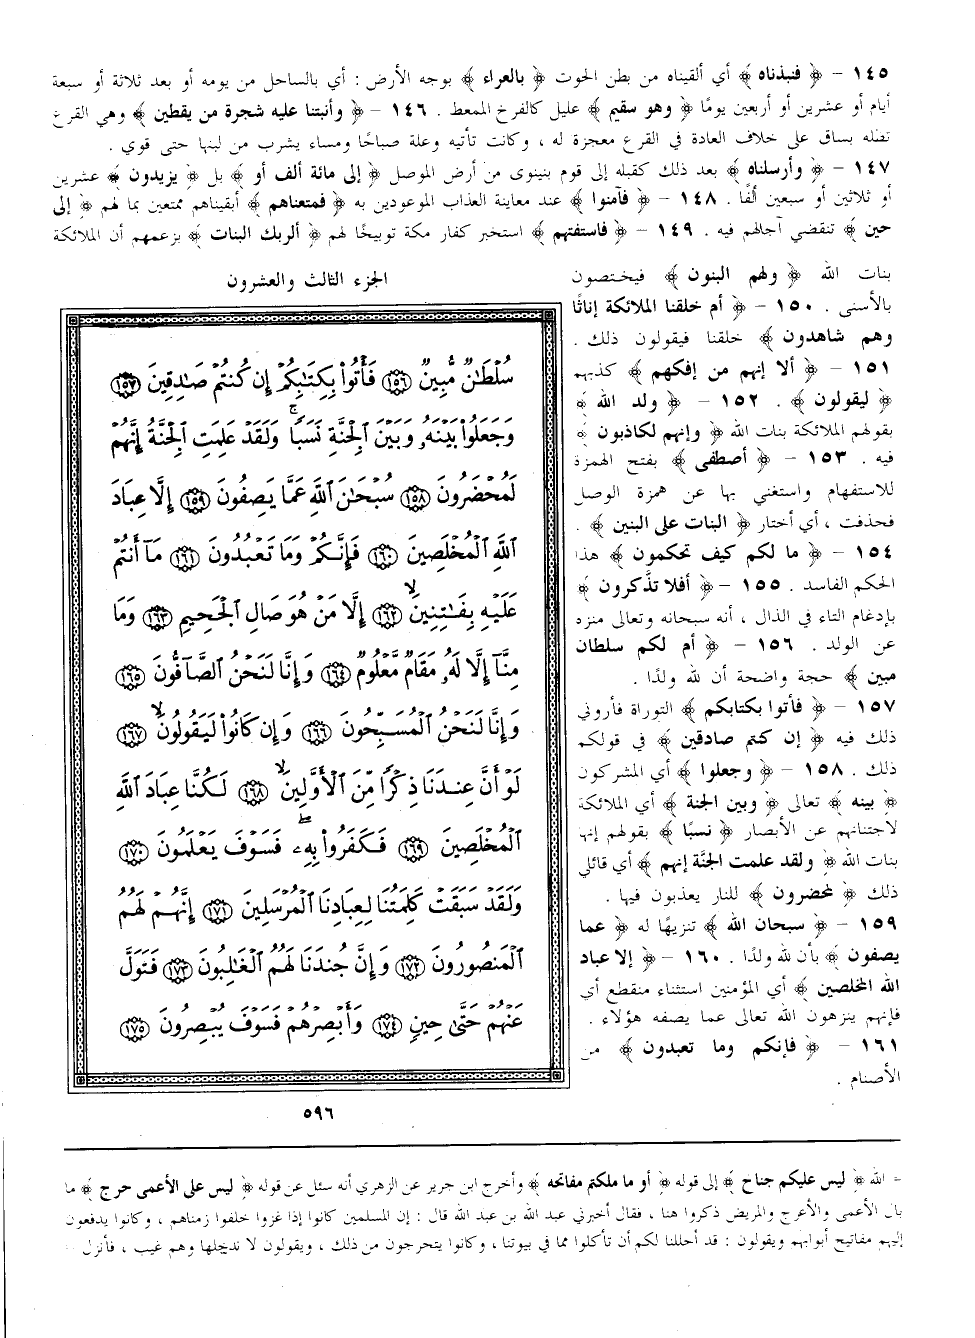 ١٤٥ – ﴿ فنبذناه ﴾ أي ألقيناه من بطن الحوت ﴿ بالعراء ﴾ بوجه الأرض : أي بالساحل من يومه أو بعد ثلاثة أو سبعة
أيام أو عشرين أو أربعين يومًا ﴿ وهو سقيم ﴾ عليل كالفرخ الممعط . ١٤٦ – ﴿ وأنبتنا عليه شجرة من يقطين ﴾ وهي القرع
تظله بساق على خلاف العادة في القرع معجزة له ، وكانت تأتيه وعلة صباحًا ومساء يشرب من لبنها حتى قوي .
١٤٧ – ﴿ وأرسلناه ﴾ بعد ذلك كقبله إلى قوم بنينوى من أرض الموصل ﴿ إلى مائة ألف أو ﴾ بل ﴿ يزيدون ﴾ عشرين
أو ثلاثين أو سبعين ألفًا . ١٤٨ – ﴿ فآمنوا ﴾ عند معاينة العذاب الموعودين به ﴿ فمتعناهم ﴾ أبقيناهم ممتعين بما لهم ﴿ إلى
حين ﴾ تنقضي آجالهم فيه . ١٤٩ – ﴿ فاستفتهم ﴾ استخبر كفار مكة توبيخًا لهم ﴿ ألربك البنات ﴾ بزعمهم أن الملائكة
بنات الله ﴿ ولهم البنون ﴾ فيختصون
بالأسنى . ١٥٠ – ﴿ أم خلقنا الملائكة إناثًا
وهم شاهدون ﴾ خلقنا فيقولون ذلك .
١٥١ – ﴿ ألا إنهم من إفكهم ﴾ كذبهم
﴿ ليقولون ﴾ . ١٥٢ – ﴿ ولد الله ﴾
بقولهم الملائكة بنات الله ﴿ وإنهم لكاذبون ﴾
فيه . ١٥٣ – ﴿ أصطفى ﴾ بفتح الهمزة
للاستفهام واستغني بها عن همزة الوصل
فحذفت ، أي أختار ﴿ البنات على البنين ﴾ .
١٥٤ – ﴿ ما لكم كيف تحكمون ﴾ هذا
الحكم الفاسد . ١٥٥ – ﴿ أفلا تذَّكرون ﴾
بإدغام التاء في الذال ، أنه سبحانه وتعالى منزه
عن الولد . ١٥٦ – ﴿ أم لكم سلطان
مبين ﴾ حجة واضحة أن لله ولدًا .
١٥٧ – ﴿ فأتوا بكتابكم ﴾ التوراة فأروني
ذلك فيه ﴿ إن كنتم صادقين ﴾ في قولكم
ذلك . ١٥٨ – ﴿ وجعلوا ﴾ أي المشركون
﴿ بينه ﴾ تعالى ﴿ وبين الجنة ﴾ أي الملائكة
لاجتنانهم عن الأبصار ﴿ نسبًا ﴾ بقولهم إنها
بنات الله ﴿ ولقد علمت الجنَّة إنهم ﴾ أي قائلي
ذلك ﴿ لمحضرون ﴾ للنار يعذبون فيها .
١٥٩ – ﴿ سبحان الله ﴾ تنزيهًا له ﴿ عما
يصفون ﴾ بأن لله ولدًا . ١٦٠ – ﴿ إلا عباد
الله المخلصين ﴾ أي المؤمنين استثناء منقطع أي
فإنهم ينزهون الله تعالى عما يصفه هؤلاء .
١٦١ – ﴿ فإنكم وما تعبدون ﴾ من
الأصنام .
الجزء الثالث والعشرون
سُلْطَٰنٌ مُّبِينٌ ١٥٦ فَأْتُوا۟ بِكِتَٰبِكُمْ إِن كُنتُمْ صَٰدِقِينَ ١٥٧
وَجَعَلُوا۟ بَيْنَهُۥ وَبَيْنَ ٱلْجِنَّةِ نَسَبًا ۚ وَلَقَدْ عَلِمَتِ ٱلْجِنَّةُ إِنَّهُمْ
لَمُحْضَرُونَ ١٥٨ سُبْحَٰنَ ٱللَّهِ عَمَّا يَصِفُونَ ١٥٩ إِلَّا عِبَادَ
ٱللَّهِ ٱلْمُخْلَصِينَ ١٦٠ فَإِنَّكُمْ وَمَا تَعْبُدُونَ ١٦١ مَآ أَنتُمْ
عَلَيْهِ بِفَٰتِنِينَ ١٦٢ إِلَّا مَنْ هُوَ صَالِ ٱلْجَحِيمِ ١٦٣ وَمَا
مِنَّآ إِلَّا لَهُۥ مَقَامٌ مَّعْلُومٌ ١٦٤ وَإِنَّا لَنَحْنُ ٱلصَّآفُّونَ ١٦٥
وَإِنَّا لَنَحْنُ ٱلْمُسَبِّحُونَ ١٦٦ وَإِن كَانُوا۟ لَيَقُولُونَ ١٦٧
لَوْ أَنَّ عِندَنَا ذِكْرًا مِّنَ ٱلْأَوَّلِينَ ١٦٨ لَكُنَّا عِبَادَ ٱللَّهِ
ٱلْمُخْلَصِينَ ١٦٩ فَكَفَرُوا۟ بِهِۦ ۖ فَسَوْفَ يَعْلَمُونَ ١٧٠
وَلَقَدْ سَبَقَتْ كَلِمَتُنَا لِعِبَادِنَا ٱلْمُرْسَلِينَ ١٧١ إِنَّهُمْ لَهُمُ
ٱلْمَنصُورُونَ ١٧٢ وَإِنَّ جُندَنَا لَهُمُ ٱلْغَٰلِبُونَ ١٧٣ فَتَوَلَّ
عَنْهُمْ حَتَّىٰ حِينٍ ١٧٤ وَأَبْصِرْهُمْ فَسَوْفَ يُبْصِرُونَ ١٧٥
٥٩٦
= الله ﴿ ليس عليكم جناح ﴾ إلى قوله ﴿ أو ما ملكتم مفاتحه ﴾ وأخرج ابن جرير عن الزهري أنه سئل عن قوله ﴿ ليس على الأعمى حرج ﴾ ما
بال الأعمى والأعرج والمريض ذكروا هنا ، فقال أخبرني عبد الله بن عبد الله قال : إن المسلمين كانوا إذا غزوا خلفوا زمناهم ، وكانوا يدفعون
إليهم مفاتيح أبوابهم ويقولون : قد أحللنا لكم أن تأكلوا مما في بيوتنا ، وكانوا يتحرجون من ذلك ، ويقولون لا ندخلها وهم غيب ، فأنزل =